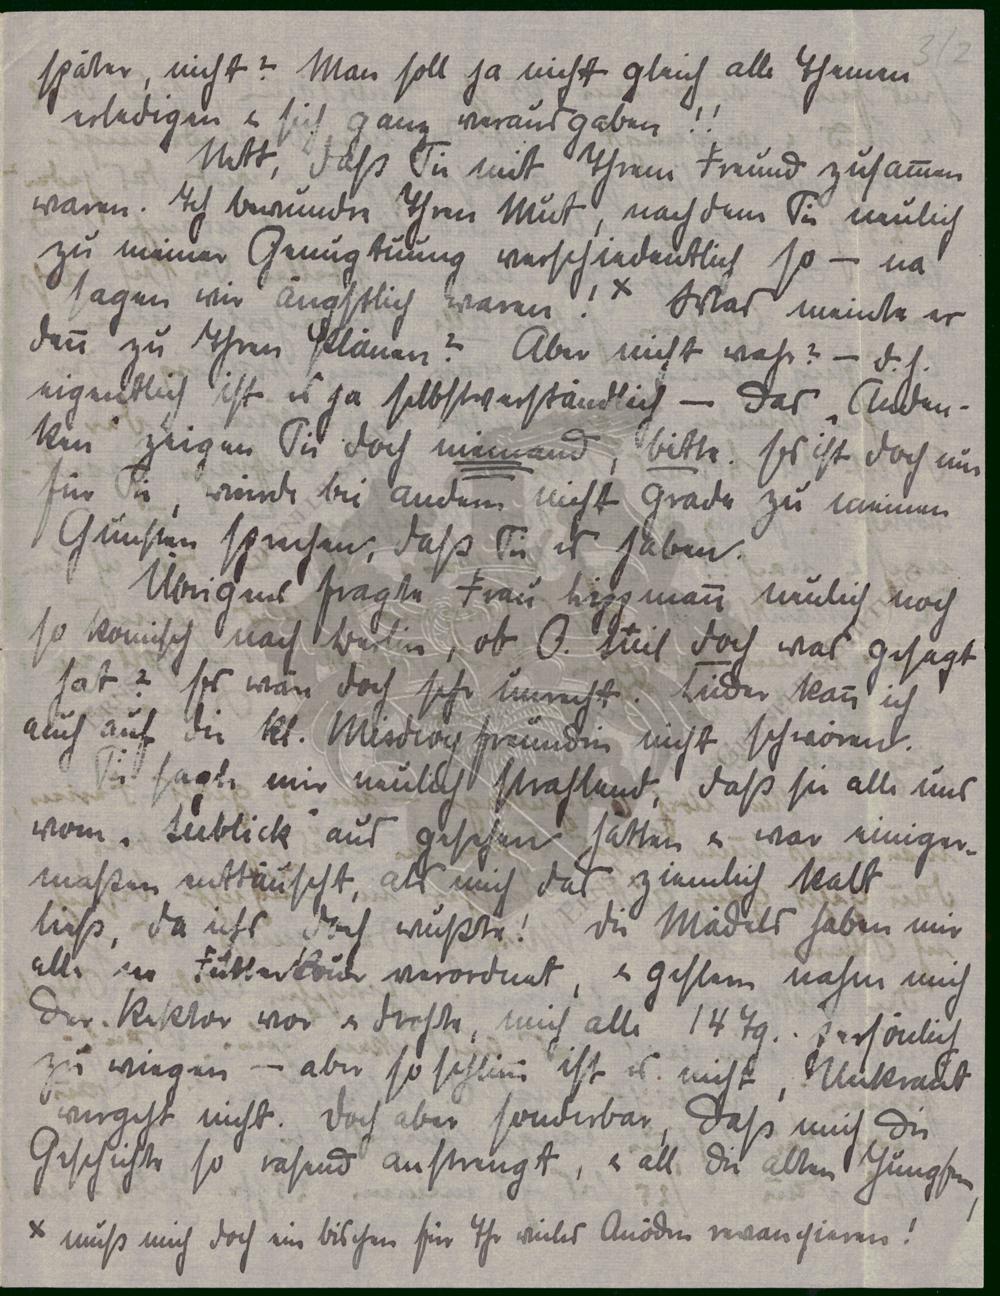 3/2
später, nicht? Man soll ja nicht gleich alle Themen
erledigen & sich ganz verausgaben!!
Nett, daß Sie mit Ihrem Freund zusam̄en
waren. Ich bewundre Ihren Mut, nachdem Sie neulich
zu meiner Genugtuung verschiedentlich so — na
sagen wir ängstlich waren! x Was meinte er
den̄ zu Ihren Plänen? Aber nicht wahr? — d. h.
eigentlich ist es ja selbstverständlich — das „Anden-
ken" zeigen Sie doch niemand, bitte. Es ist doch nur
für Sie, würde bei andern nicht grade zu meinen
Gunsten sprechen, daß Sie es haben.
Übrigens fragte Frau Lippman̄ neulich noch
so komisch nach Berlin, ob O. doch was gesagt
hat? Es wäre doch sehr unrecht. Leider kan̄ ich
auch auf die kl. Misdroy freundin nicht schwören.
Sie sagte mir neulich strahlend, daß sie alle uns
vom „Seeblick" aus gesehen hätten & war einiger-
maßen enttäuscht, als mich das ziemlich kalt
ließ, da ichs doch wußte! Die Mädels haben mir
alle ne Futterkur verordnet, & gestern nahm mich
der Rektor vor & drohte, mich alle 14 Tg. persönlich
zu wiegen — aber so schlim̄ ist es nicht, Unkraut
vergeht nicht. Doch aber sonderbar, daß mich die
Geschichte so rasend anstrengt, & all die alten Jungfern,
x muß mich doch ein bischen für Ihr vieles Anöden revanchieren!